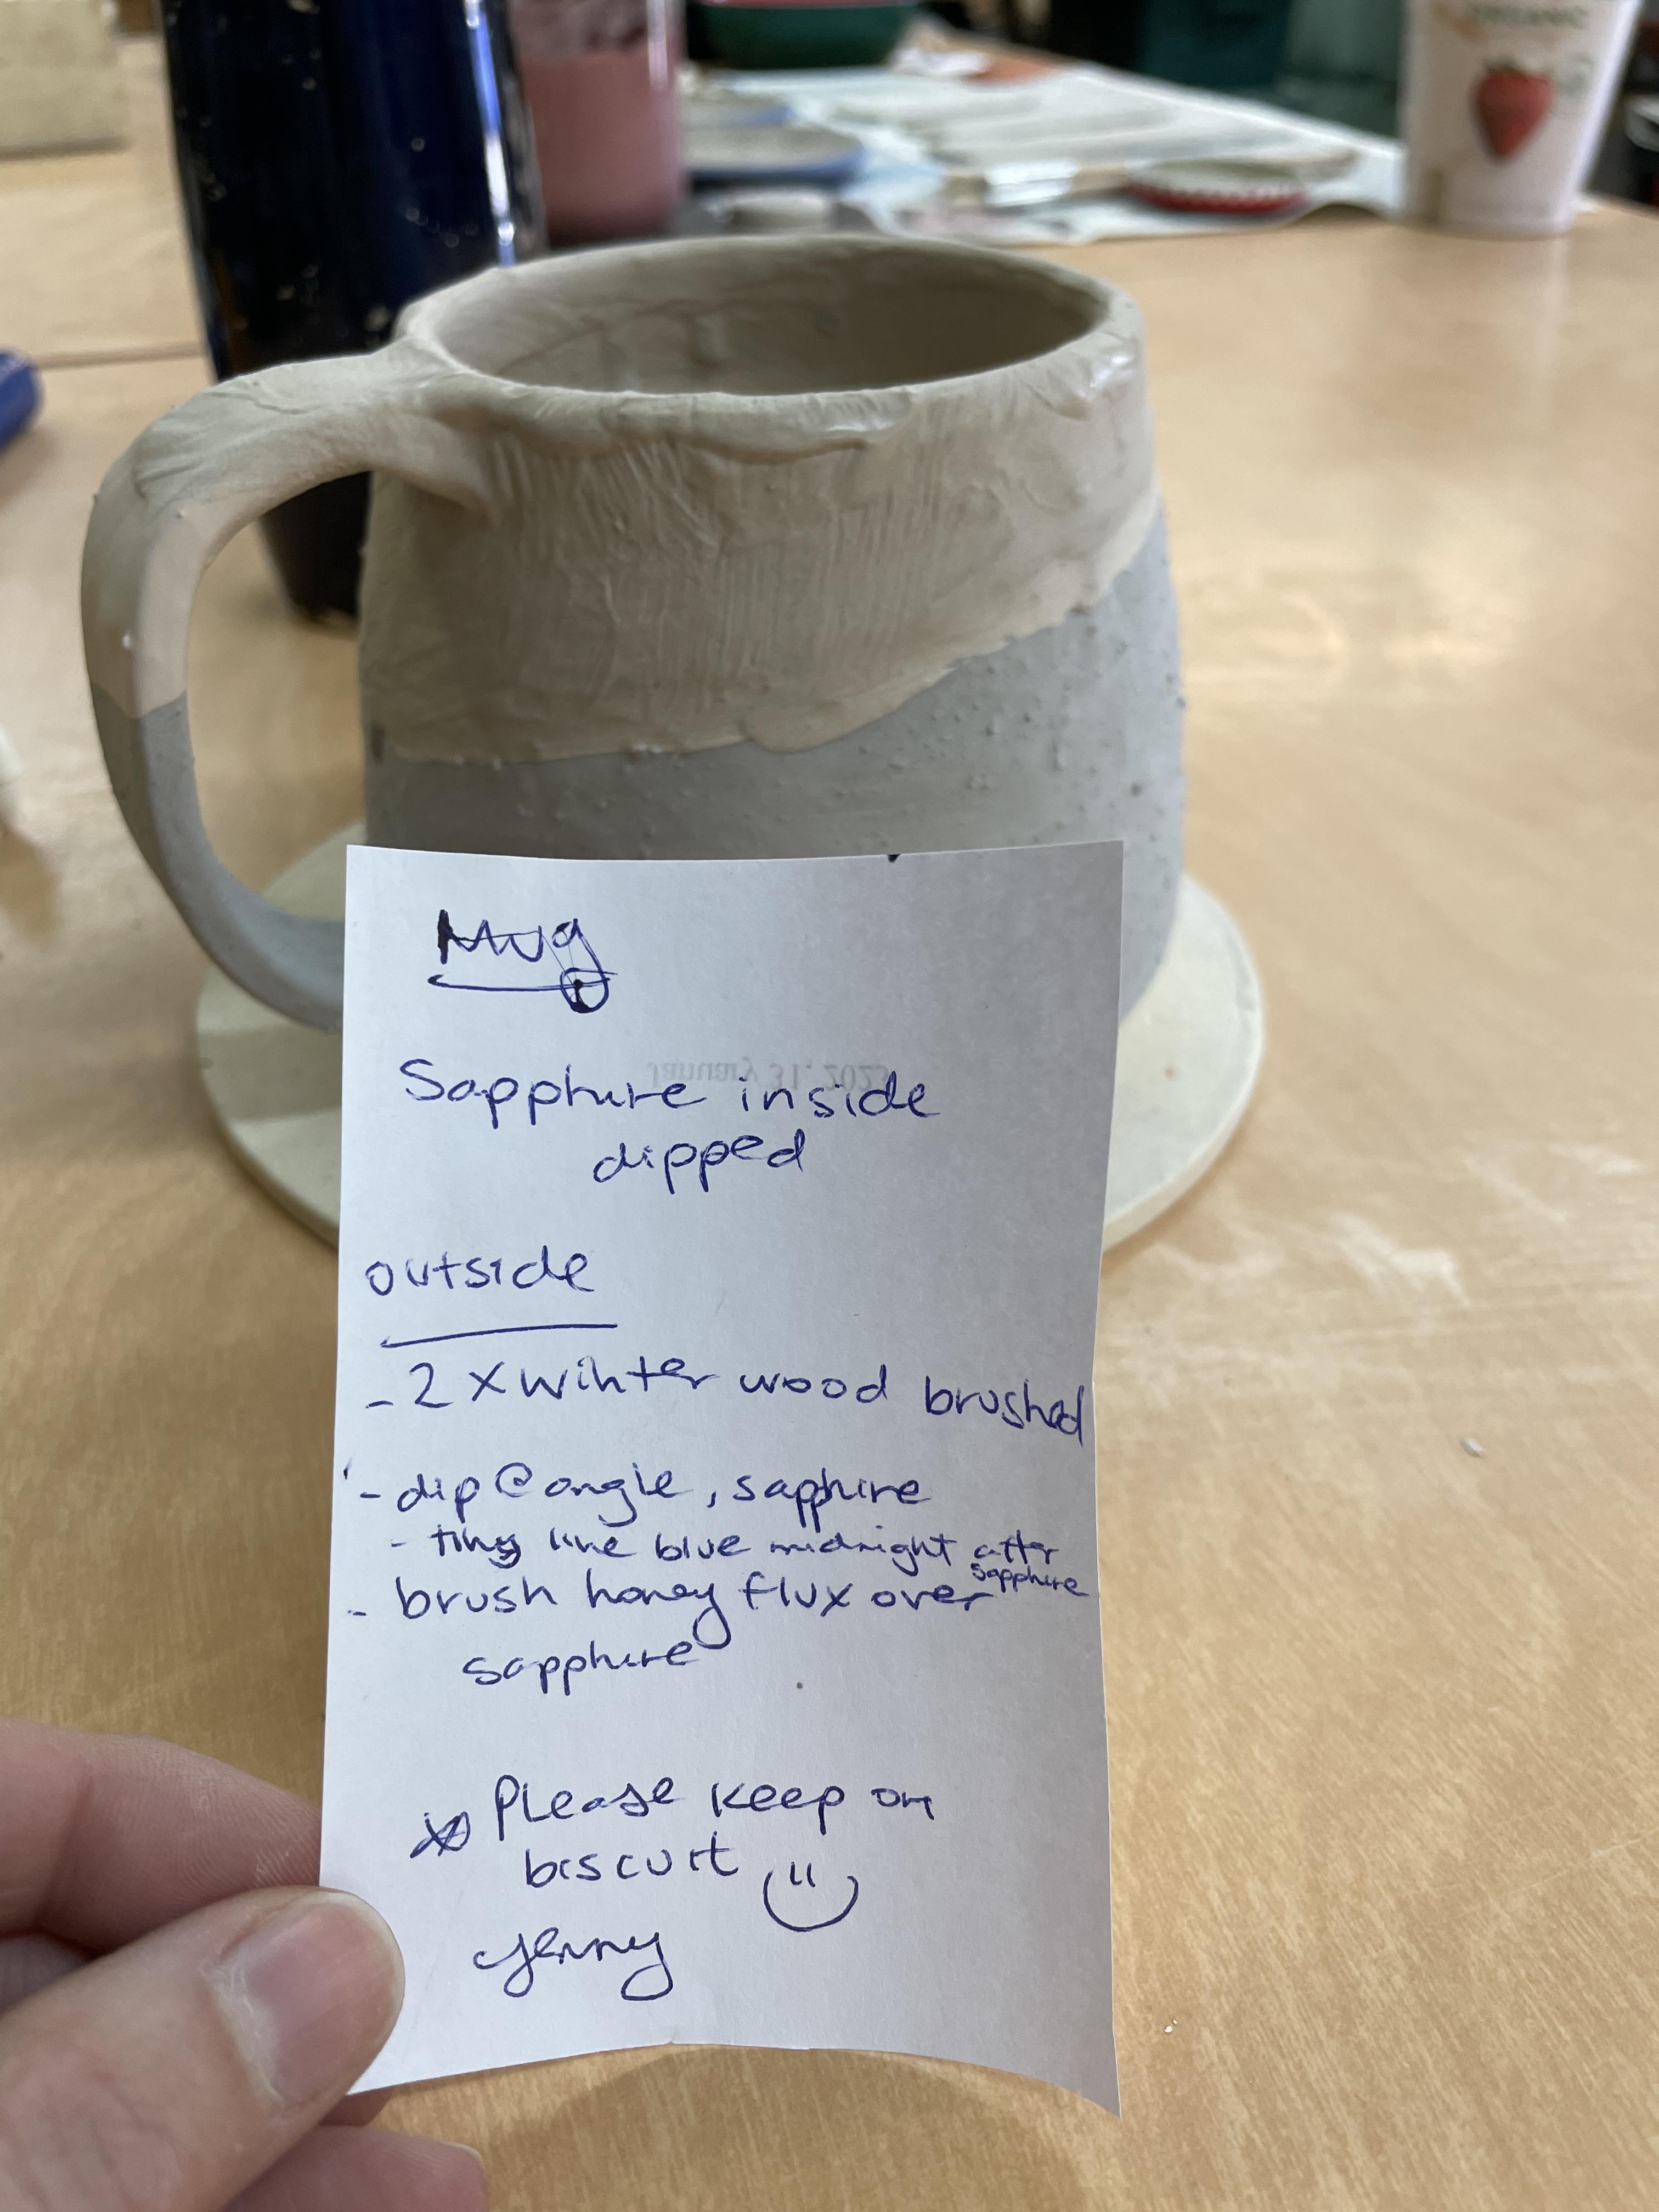 ORGANIC
Mug
January 31, 2025
Sapphire inside
dipped
outside
- 2 x winter wood brushed
- dip @ angle, saphire
- tiny line blue midnight after
sapphire
- brush honey flux over
sapphire
Please keep on
biscuit
Jenny